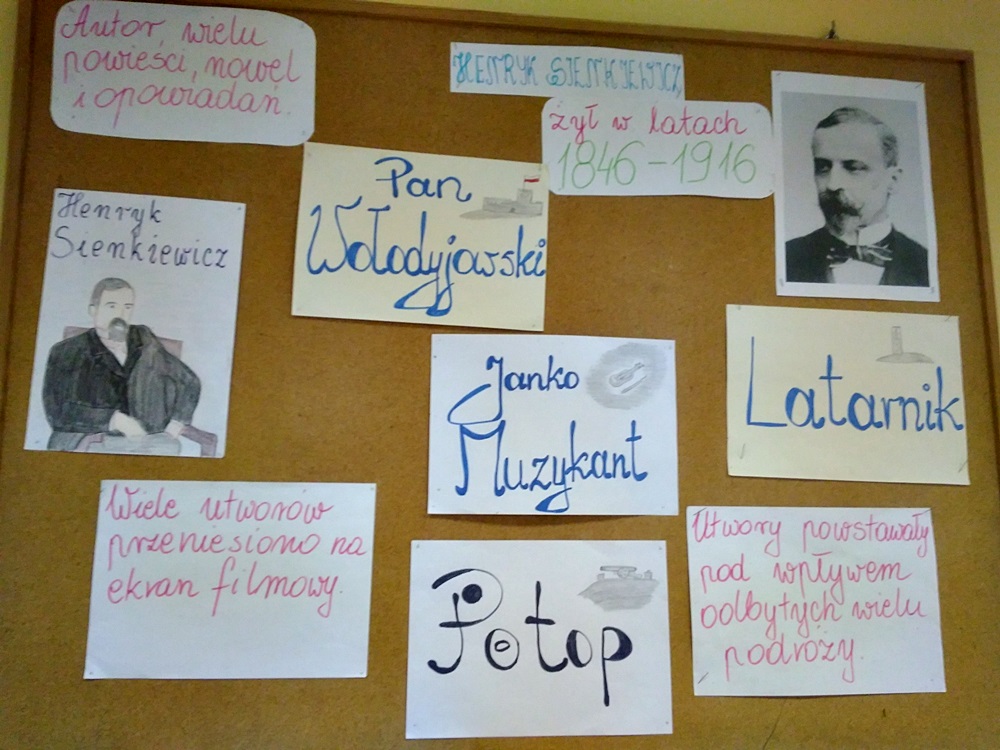 Autor wielu
powieści, nowel
i opowiadań.
HENRYK SIENKIEWICZ
żył w latach
1846-1916
Henryk
Sienkiewicz
Pan
Wołodyjowski
Janko
Muzykant
Latarnik
Wiele utworów
przeniesiono na
ekran filmowy.
Potop
Utwory powstawały
pod wpływem
odbytych wielu
podróży.